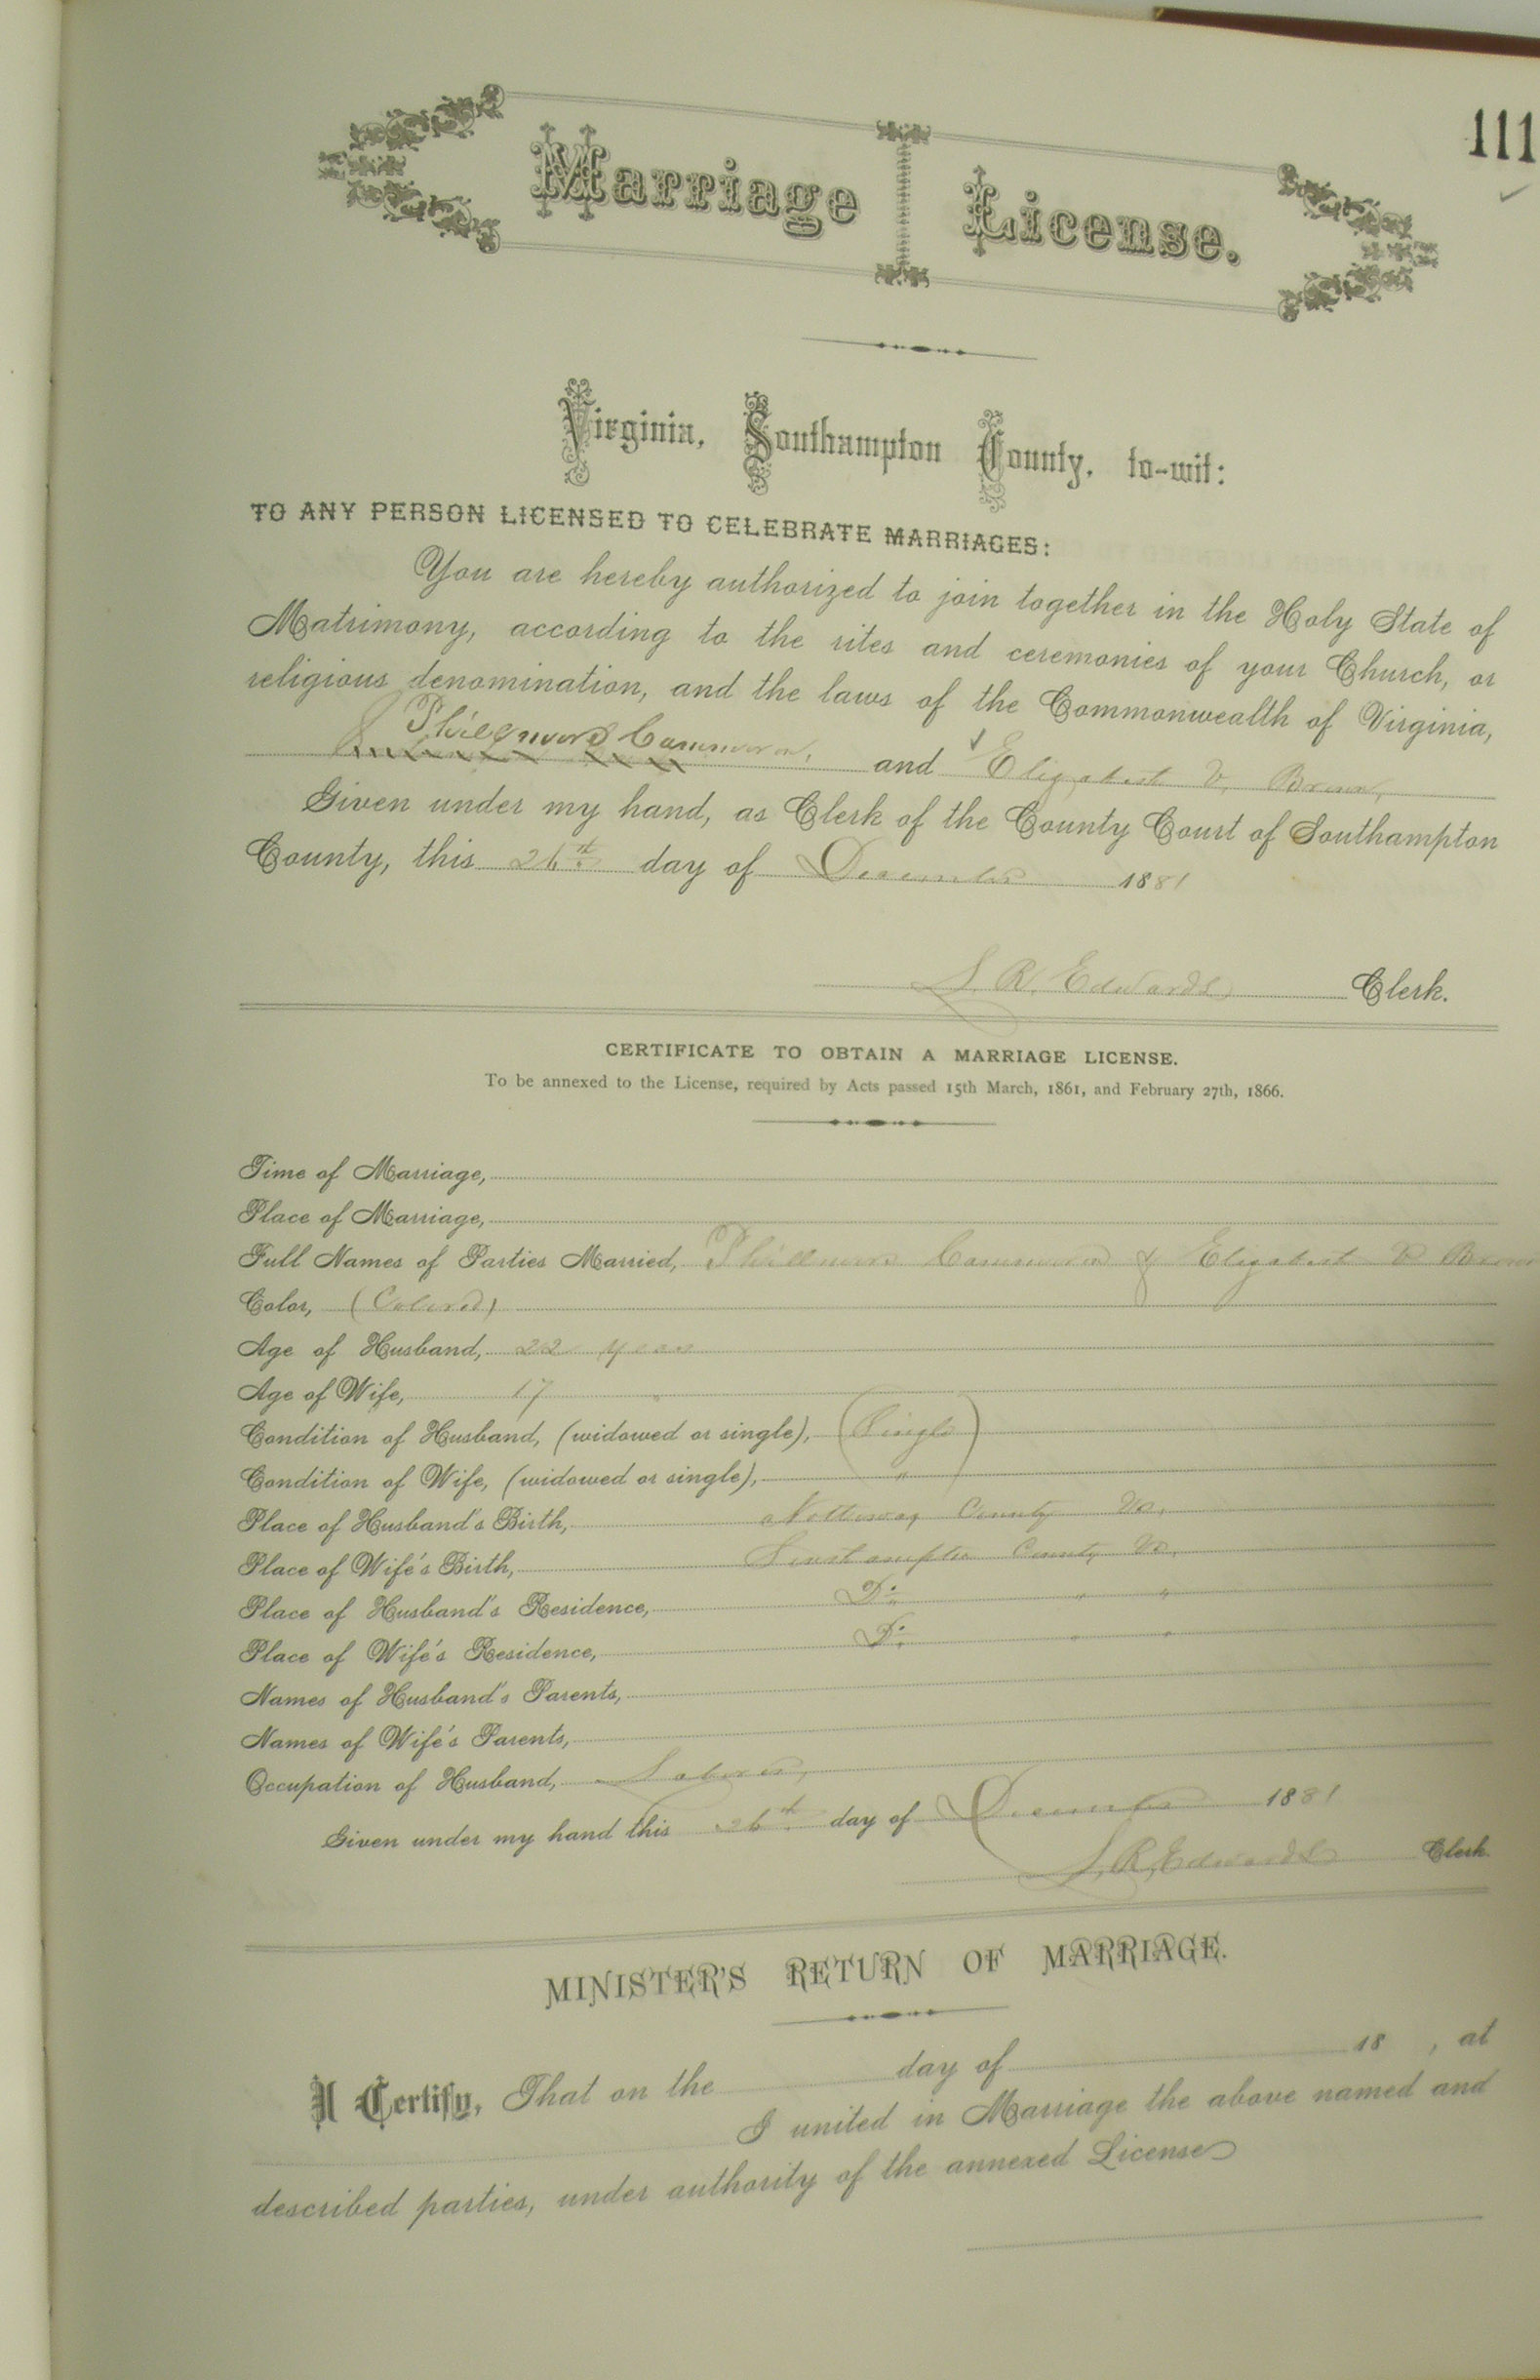 111
Marriage License.
Virginia, Southampton County, to-wit:
TO ANY PERSON LICENSED TO CELEBRATE MARRIAGES:
You are hereby authorized to join together in the Holy State of
Matrimony, according to the rites and ceremonies of your Church, or
religious denomination, and the laws of the Commonwealth of Virginia,
and Elizabeth V. Brown,
Given under my hand, as Clerk of the County Court of Southampton
County, this 26th day of December 1881
L. R. Edwards Clerk.
CERTIFICATE TO OBTAIN A MARRIAGE LICENSE.
To be annexed to the License, required by Acts passed 15th March, 1861, and February 27th, 1866.
Time of Marriage,
Place of Marriage,
Full Names of Parties Married, & Elizabeth V Brown
Color, (Colored)
Age of Husband, 22 years
Age of Wife, 17 "
Condition of Husband, (widowed or single), (Single)
Condition of Wife, (widowed or single), "
Place of Husband's Birth, Nottoway County Va,
Place of Wife's Birth, Southampton County Va,
Place of Husband's Residence, Do. " "
Place of Wife's Residence, Do. " "
Names of Husband's Parents,
Names of Wife's Parents,
Occupation of Husband, Laborer,
Given under my hand this 26th day of December 1881
L. R. Edwards Clerk.
MINISTER'S RETURN OF MARRIAGE.
I Certify, That on the day of 18 , at
I united in Marriage the above named and
described parties, under authority of the annexed License